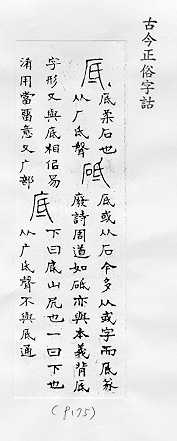 古今正俗字詁
厎
厎柔石也
从厂氐聲
砥
厎或从石今多从或字而厎篆
廢詩周道如砥亦與本義背厎
字形又與底相佀易
淆用當畱意又广部
底
下曰底山凥也一曰下也
从广氐聲不與厎通
(P175)